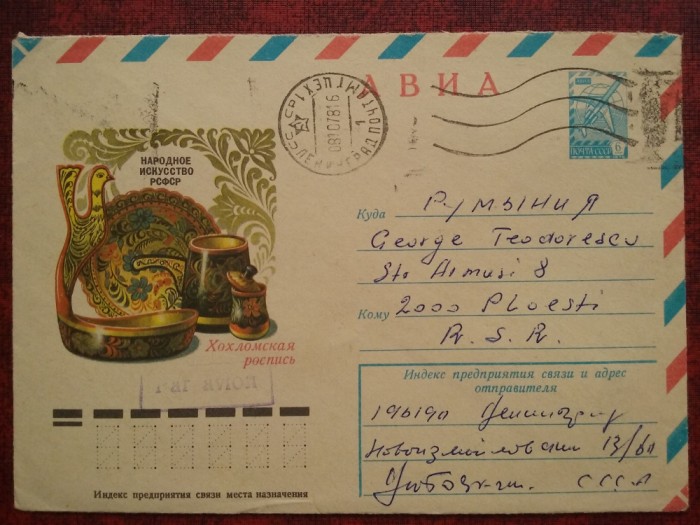 АВИА
СССР ЛЕНИНГРАД ПОЧТАМТ ЦЕХ 1
081078 16
1
ПОЧТА СССР
6
НАРОДНОЕ
ИСКУССТВО
РСФСР
Хохломская
роспись
Куда Румыния
George Teodorescu
Str Armasi 8
Кому 2000 Ploesti
R. S. R.
Индекс предприятия связи и адрес
отправителя
Ленинград
13/60
СССР
Индекс предприятия связи места назначения